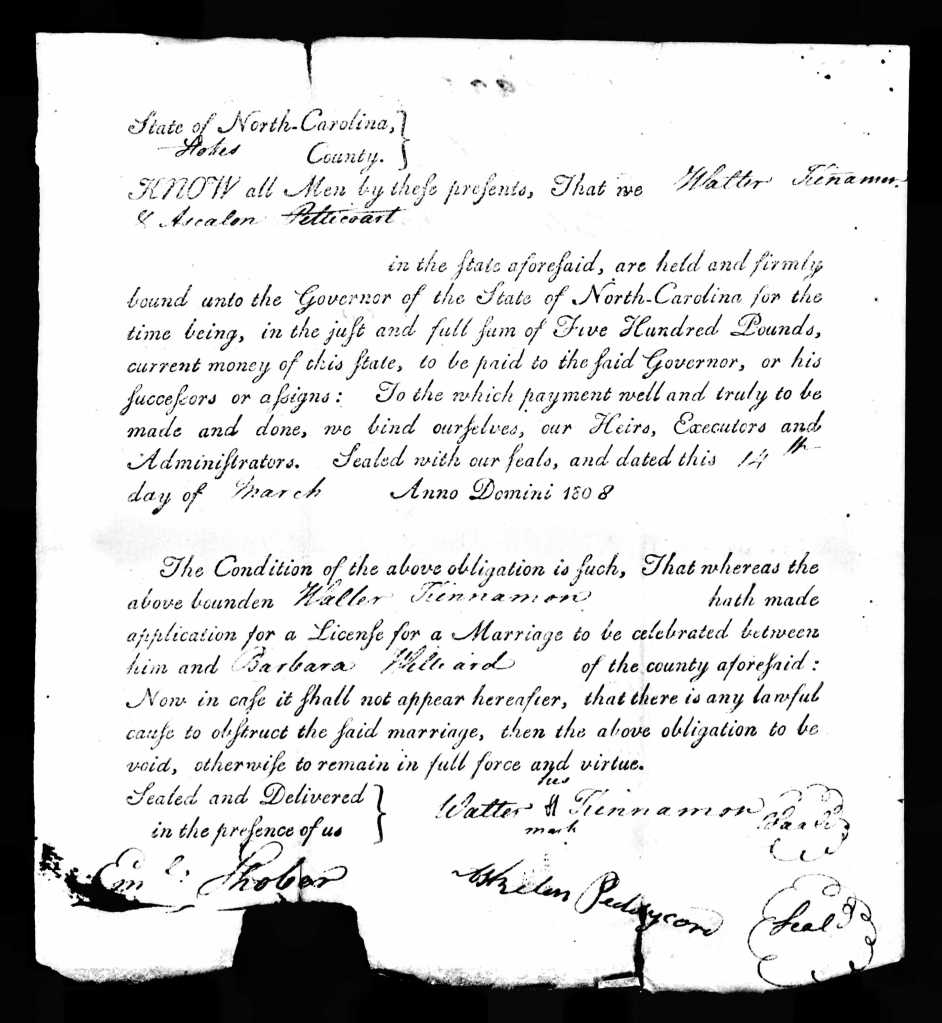 State of North-Carolina,
Stokes County.
KNOW all Men by theſe preſents, That we Walter Kinnamon
& Ascalon Petticoart
in the ſtate aforeſaid, are held and firmly
bound unto the Governor of the State of North-Carolina for the
time being, in the juſt and full ſum of Five Hundred Pounds,
current money of this ſtate, to be paid to the ſaid Governor, or his
ſucceſsors or aſsigns: To the which payment well and truly to be
made and done, we bind ourſelves, our Heirs, Executors and
Adminiſtrators. Sealed with our ſeals, and dated this 14th
day of March Anno Domini 1808
The Condition of the above obligation is ſuch, That whereas the
above bounden Walter Kinnamon hath made
application for a Licenſe for a Marriage to be celebrated between
him and Barbara Williard of the county aforeſaid:
Now in caſe it ſhall not appear hereafter, that there is any lawful
cauſe to obſtruct the ſaid marriage, then the above obligation to be
void, otherwiſe to remain in full force and virtue.
Sealed and Delivered
in the preſence of us
his
Walter H Kinnamon Seal
mark
Eml: Shober Askelon Peddycord Seal